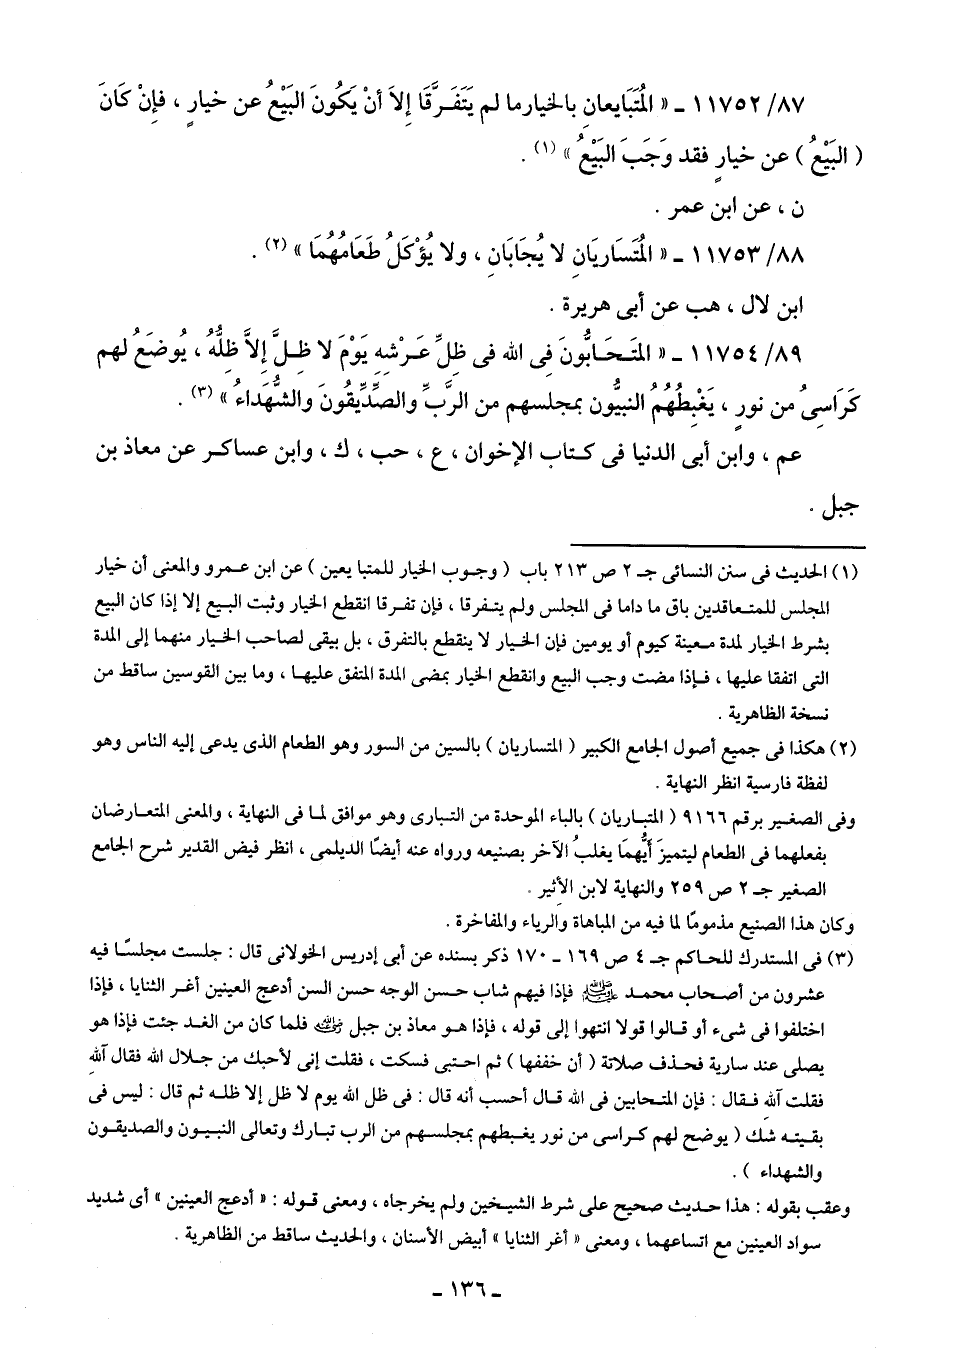 ١١٧٥٢/٨٧ ـ « المُتَبَايعانِ بالخيارما لم يَتَفَرَّقَا إلاَ أنْ يَكُونَ البَيْعُ عن خيارٍ ، فإنْ كَانَ
( البَيْعُ ) عن خيارٍ فقد وَجَبَ البَيْعُ » (١) .
ن ، عن ابن عمر .
١١٧٥٣/٨٨ ـ « المُتَسَاريَانِ لا يُجَابَانِ ، ولا يُؤْكَلُ طَعَامُهُمَا » (٢) .
ابن لال ، هب عن أبى هريرة .
١١٧٥٤/٨٩ ـ « المتَحَابُّونَ فِى الله فى ظِلِّ عَرْشِهِ يَوْمَ لا ظِلَّ إلاَّ ظِلُّهُ ، يُوضَعُ لهم
كَرَاسِىُ من نورٍ ، يَغْبِطُهُمُ النبيُّون بمجلسهم من الرَّبِّ والصِّدِّيقُونَ والشُّهَداءُ » (٣) .
عم ، وابن أبى الدنيا فى كتاب الإخوان ، ع ، حب ، ك ، وابن عساكر عن معاذ بن
جبل .
(١) الحديث فى سنن النسائى جـ ٢ ص ٢١٣ باب ( وجوب الخيار للمتبا يعين ) عن ابن عمرو والمعنى أن خيار
المجلس للمتعاقدين باق ما داما فى المجلس ولم يتفرقا ، فإن تفرقا انقطع الخيار وثبت البيع إلا إذا كان البيع
بشرط الخيار لمدة معينة كيوم أو يومين فإن الخيار لا ينقطع بالتفرق ، بل يبقى لصاحب الخيار منهما إلى المدة
التى اتفقا عليها ، فإذا مضت وجب البيع وانقطع الخيار بمضى المدة المتفق عليها ، وما بين القوسين ساقط من
نسخة الظاهرية .
(٢) هكذا فى جميع أصول الجامع الكبير ( المتساريان ) بالسين من السور وهو الطعام الذى يدعى إليه الناس وهو
لفظة فارسية انظر النهاية .
وفى الصغير برقم ٩١٦٦ ( المتباريان ) بالباء الموحدة من التبارى وهو موافق لما فى النهاية ، والمعنى المتعارضان
بفعلهما فى الطعام ليتميزَ أيُّهمَا يغلبُ الآخر بصنيعه ورواه عنه أيضًا الديلمى ، انظر فيض القدير شرح الجامع
الصغير جـ ٢ ص ٢٥٩ والنهاية لابن الأثير .
وكان هذا الصنيع مذمومًا لما فيه من المباهاة والرياء والمفاخرة .
(٣) فى المستدرك للحاكم جـ ٤ ص ١٦٩ ـ ١٧٠ ذكر بسنده عن أبى إدريس الخولانى قال : جلست مجلسًا فيه
عشرون من أصحاب محمد ﷺ فإذا فيهم شاب حسن الوجه حسن السن أدعج العينين أغر الثنايا ، فإذا
اختلفوا فى شىء أو قالوا قولا انتهوا إلى قوله ، فإذا هو معاذ بن جبل رضي الله عنه فلما كان من الغد جئت فإذا هو
يصلى عند سارية فحذف صلاتة ( أن خففها ) ثم احتبى فسكت ، فقلت إنى لأحبك من جلال الله فقال آللهِ
فقلت آللهِ فقال : فإن المتحابين فى الله قال أحسب أنه قال : فى ظل الله يوم لا ظل إلا ظله ثم قال : ليس فى
بقيته شك ( يوضح لهم كراسى من نور يغبطهم بمجلسهم من الرب تبارك وتعالى النبيون والصديقون
والشهداء ) .
وعقب بقوله : هذا حديث صحيح على شرط الشيخين ولم يخرجاه ، ومعنى قوله : « أدعج العينين » أى شديد
سواد العينين مع اتساعهما ، ومعنى « أغر الثنايا » أبيض الأسنان ، والحديث ساقط من الظاهرية .
ـ ١٣٦ ـ